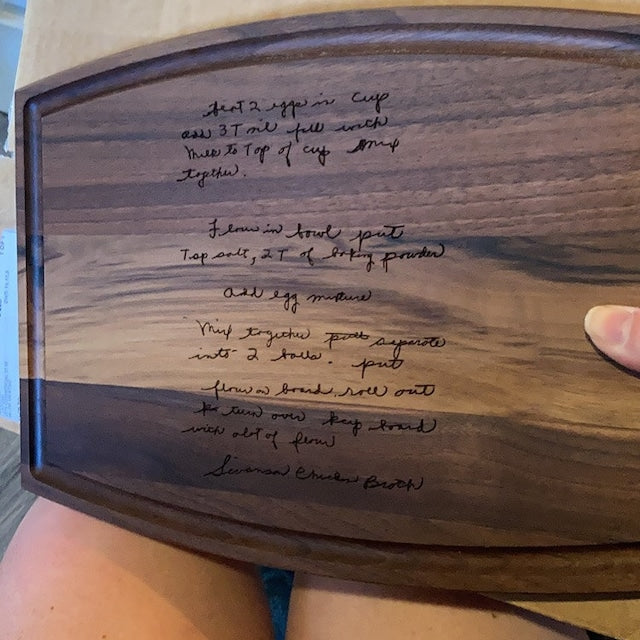 beat 2 eggs in cup
add 3 T oil fill with
milk to Top of cup mix
together.
Flour in bowl put
Tsp salt, 2 T of baking powder
add egg mixture
Mix together put separate
into 2 balls. put
flour on board, roll out
to turn over keep board
with alot of flour
Swanson Chicken Broth